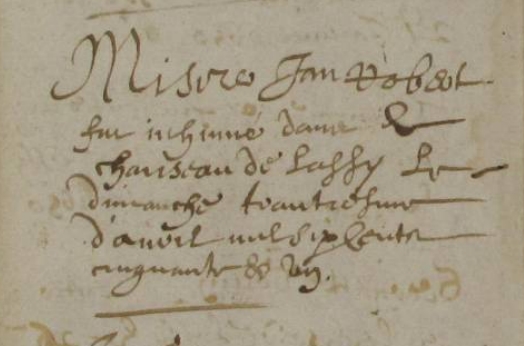 Misire Jan Robert
fut inhumé dans le
chanseau de Lassy le
dimanche trantiesme
d'avril mil six cents
cinquante & un.